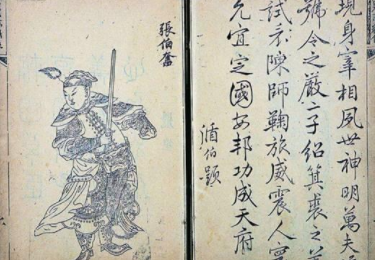 現身宰相夙世神明萬夫
號令之嚴二子紹箕裘之
試陳師鞠旅威震人寰
允宜定國安邦功成天府
伯
張伯奮